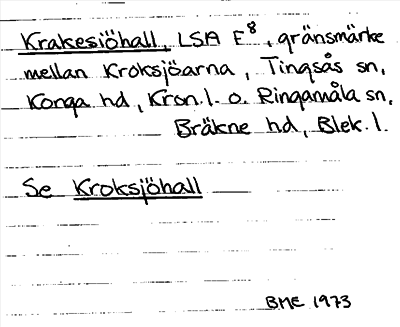 Krakesiöhall, LSA E⁸, gränsmärke
mellan Kroksjöarna, Tingsås sn,
Konga hd, Kron.l. o. Ringamåla sn,
Bräkne hd, Blek.l.
Se Kroksjöhall
BME 1973